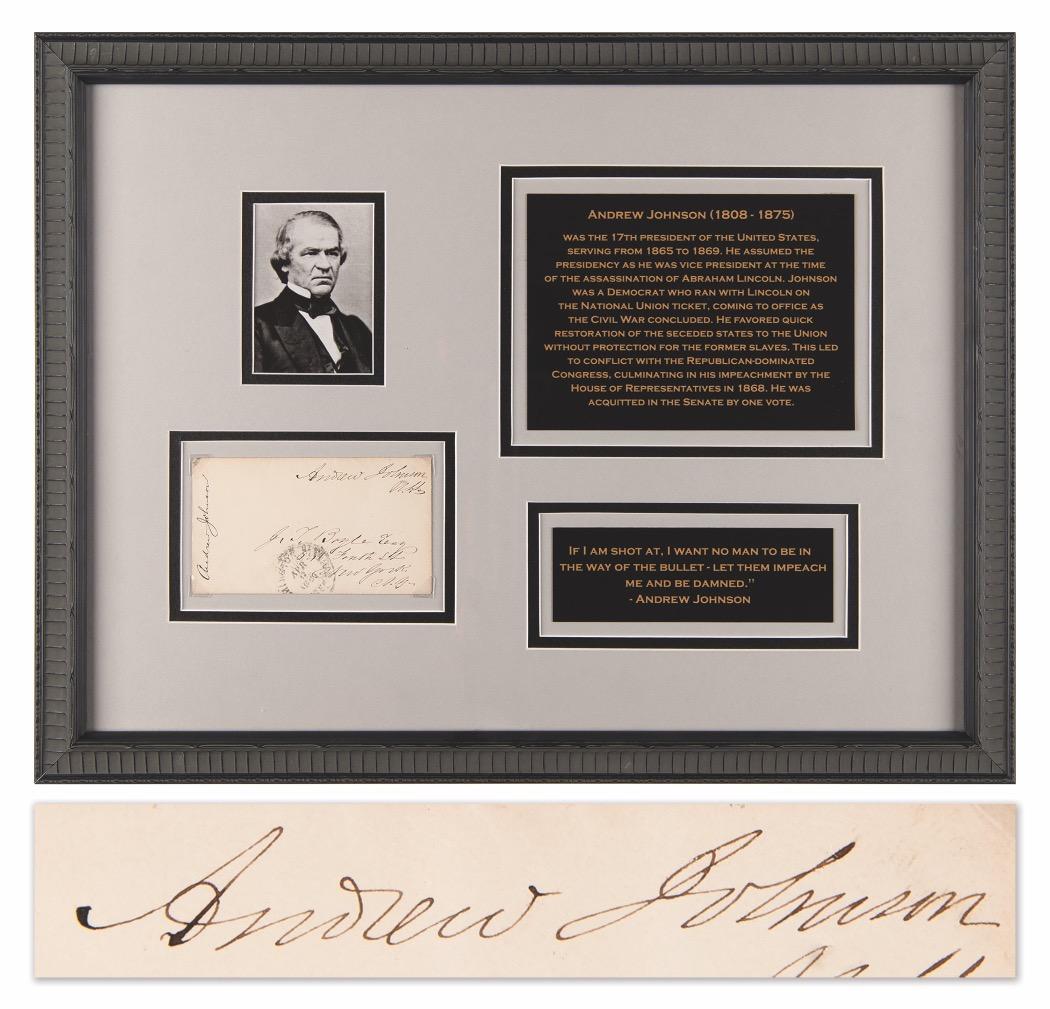 Andrew Johnson (1808 - 1875)
was the 17th president of the United States,
serving from 1865 to 1869. He assumed the
presidency as he was vice president at the time
of the assassination of Abraham Lincoln. Johnson
was a Democrat who ran with Lincoln on
the National Union ticket, coming to office as
the Civil War concluded. He favored quick
restoration of the seceded states to the Union
without protection for the former slaves. This led
to conflict with the Republican-dominated
Congress, culminating in his impeachment by the
House of Representatives in 1868. He was
acquitted in the Senate by one vote.
Andrew Johnson
Andrew Johnson
J. T. Boyle Esq
New York
N.Y.
If I am shot at, I want no man to be in
the way of the bullet - let them impeach
me and be damned."
- Andrew Johnson
Andrew Johnson